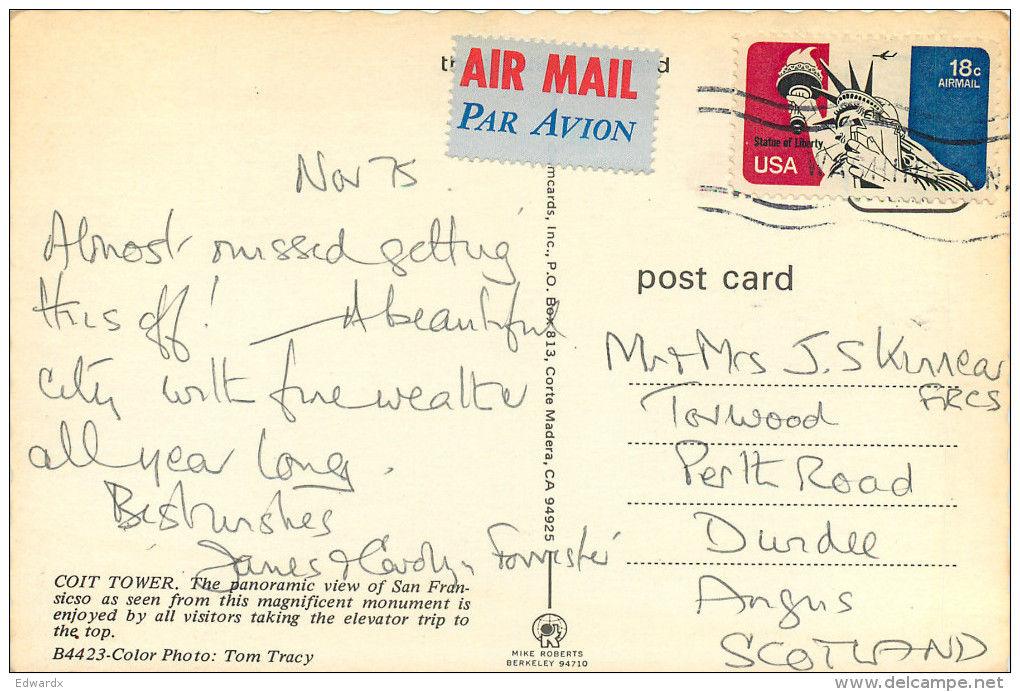 AIR MAIL
PAR AVION
18c
AIRMAIL
Statue of Liberty
USA
Nov 75
Almost missed getting
this off! A beautiful
city with fine weather
all year long.
Best wishes
James & Carolyn Forrester
COIT TOWER. The panoramic view of San Fran-
sicso as seen from this magnificent monument is
enjoyed by all visitors taking the elevator trip to
the top.
B4423-Color Photo: Tom Tracy
mcards, Inc., P.O. Box 813, Corte Madera, CA 94925
MIKE ROBERTS
BERKELEY 94710
post card
Mr + Mrs J. S Kinnear
FRCS
Torwood
Perth Road
Dundee
Angus
SCOTLAND
Edwardx
delcampe.net